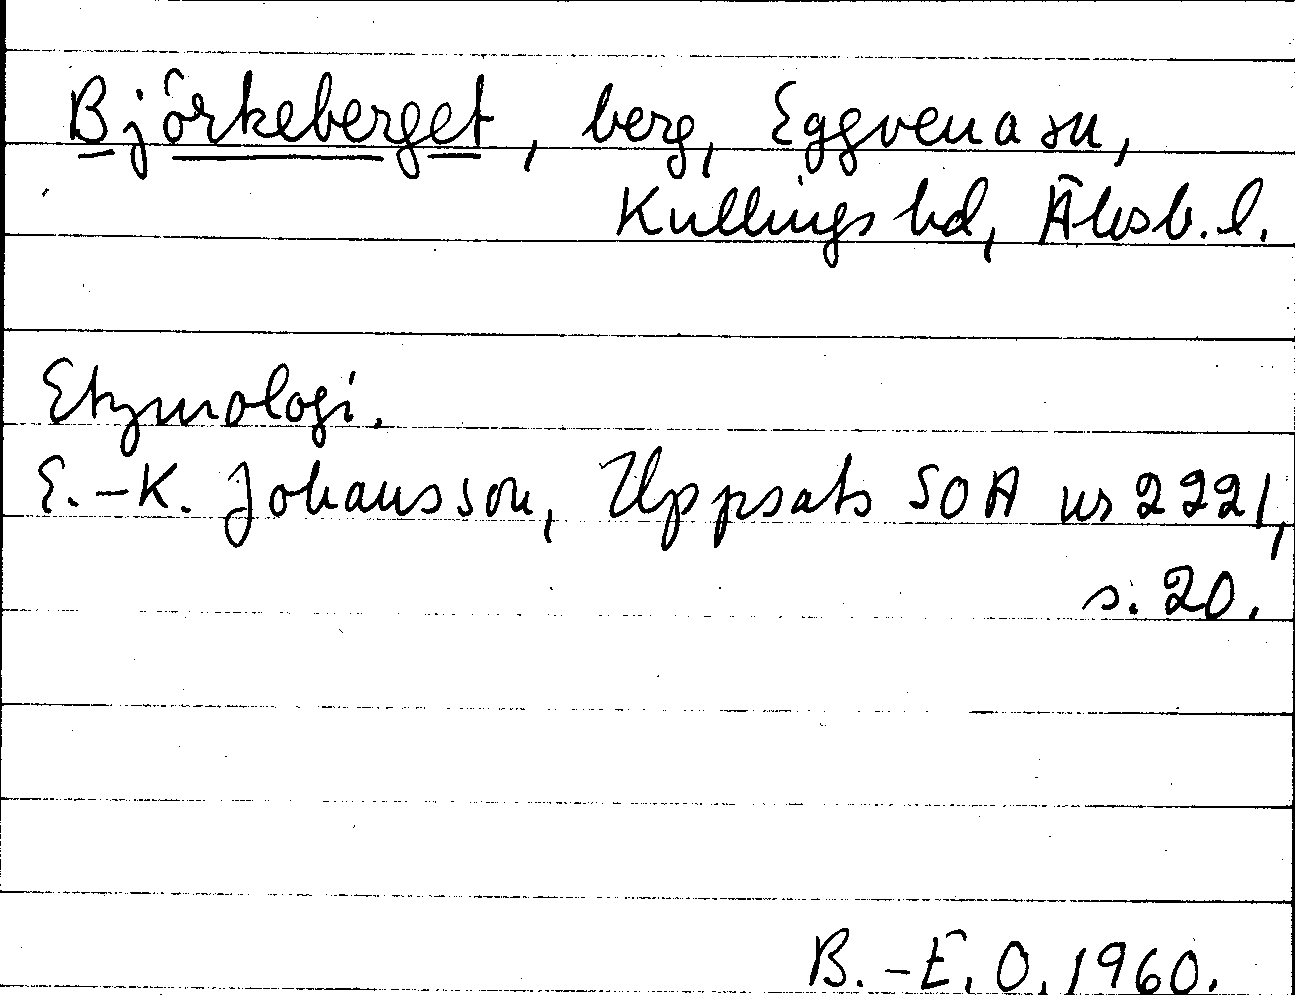 Björkeberget, berg, Eggvena sn,
Kullings hd, Älvsb. l.
Etymologi.
E.-K. Johansson, Uppsats SOA nr 2221,
s. 20.
B.-E. O. 1960.